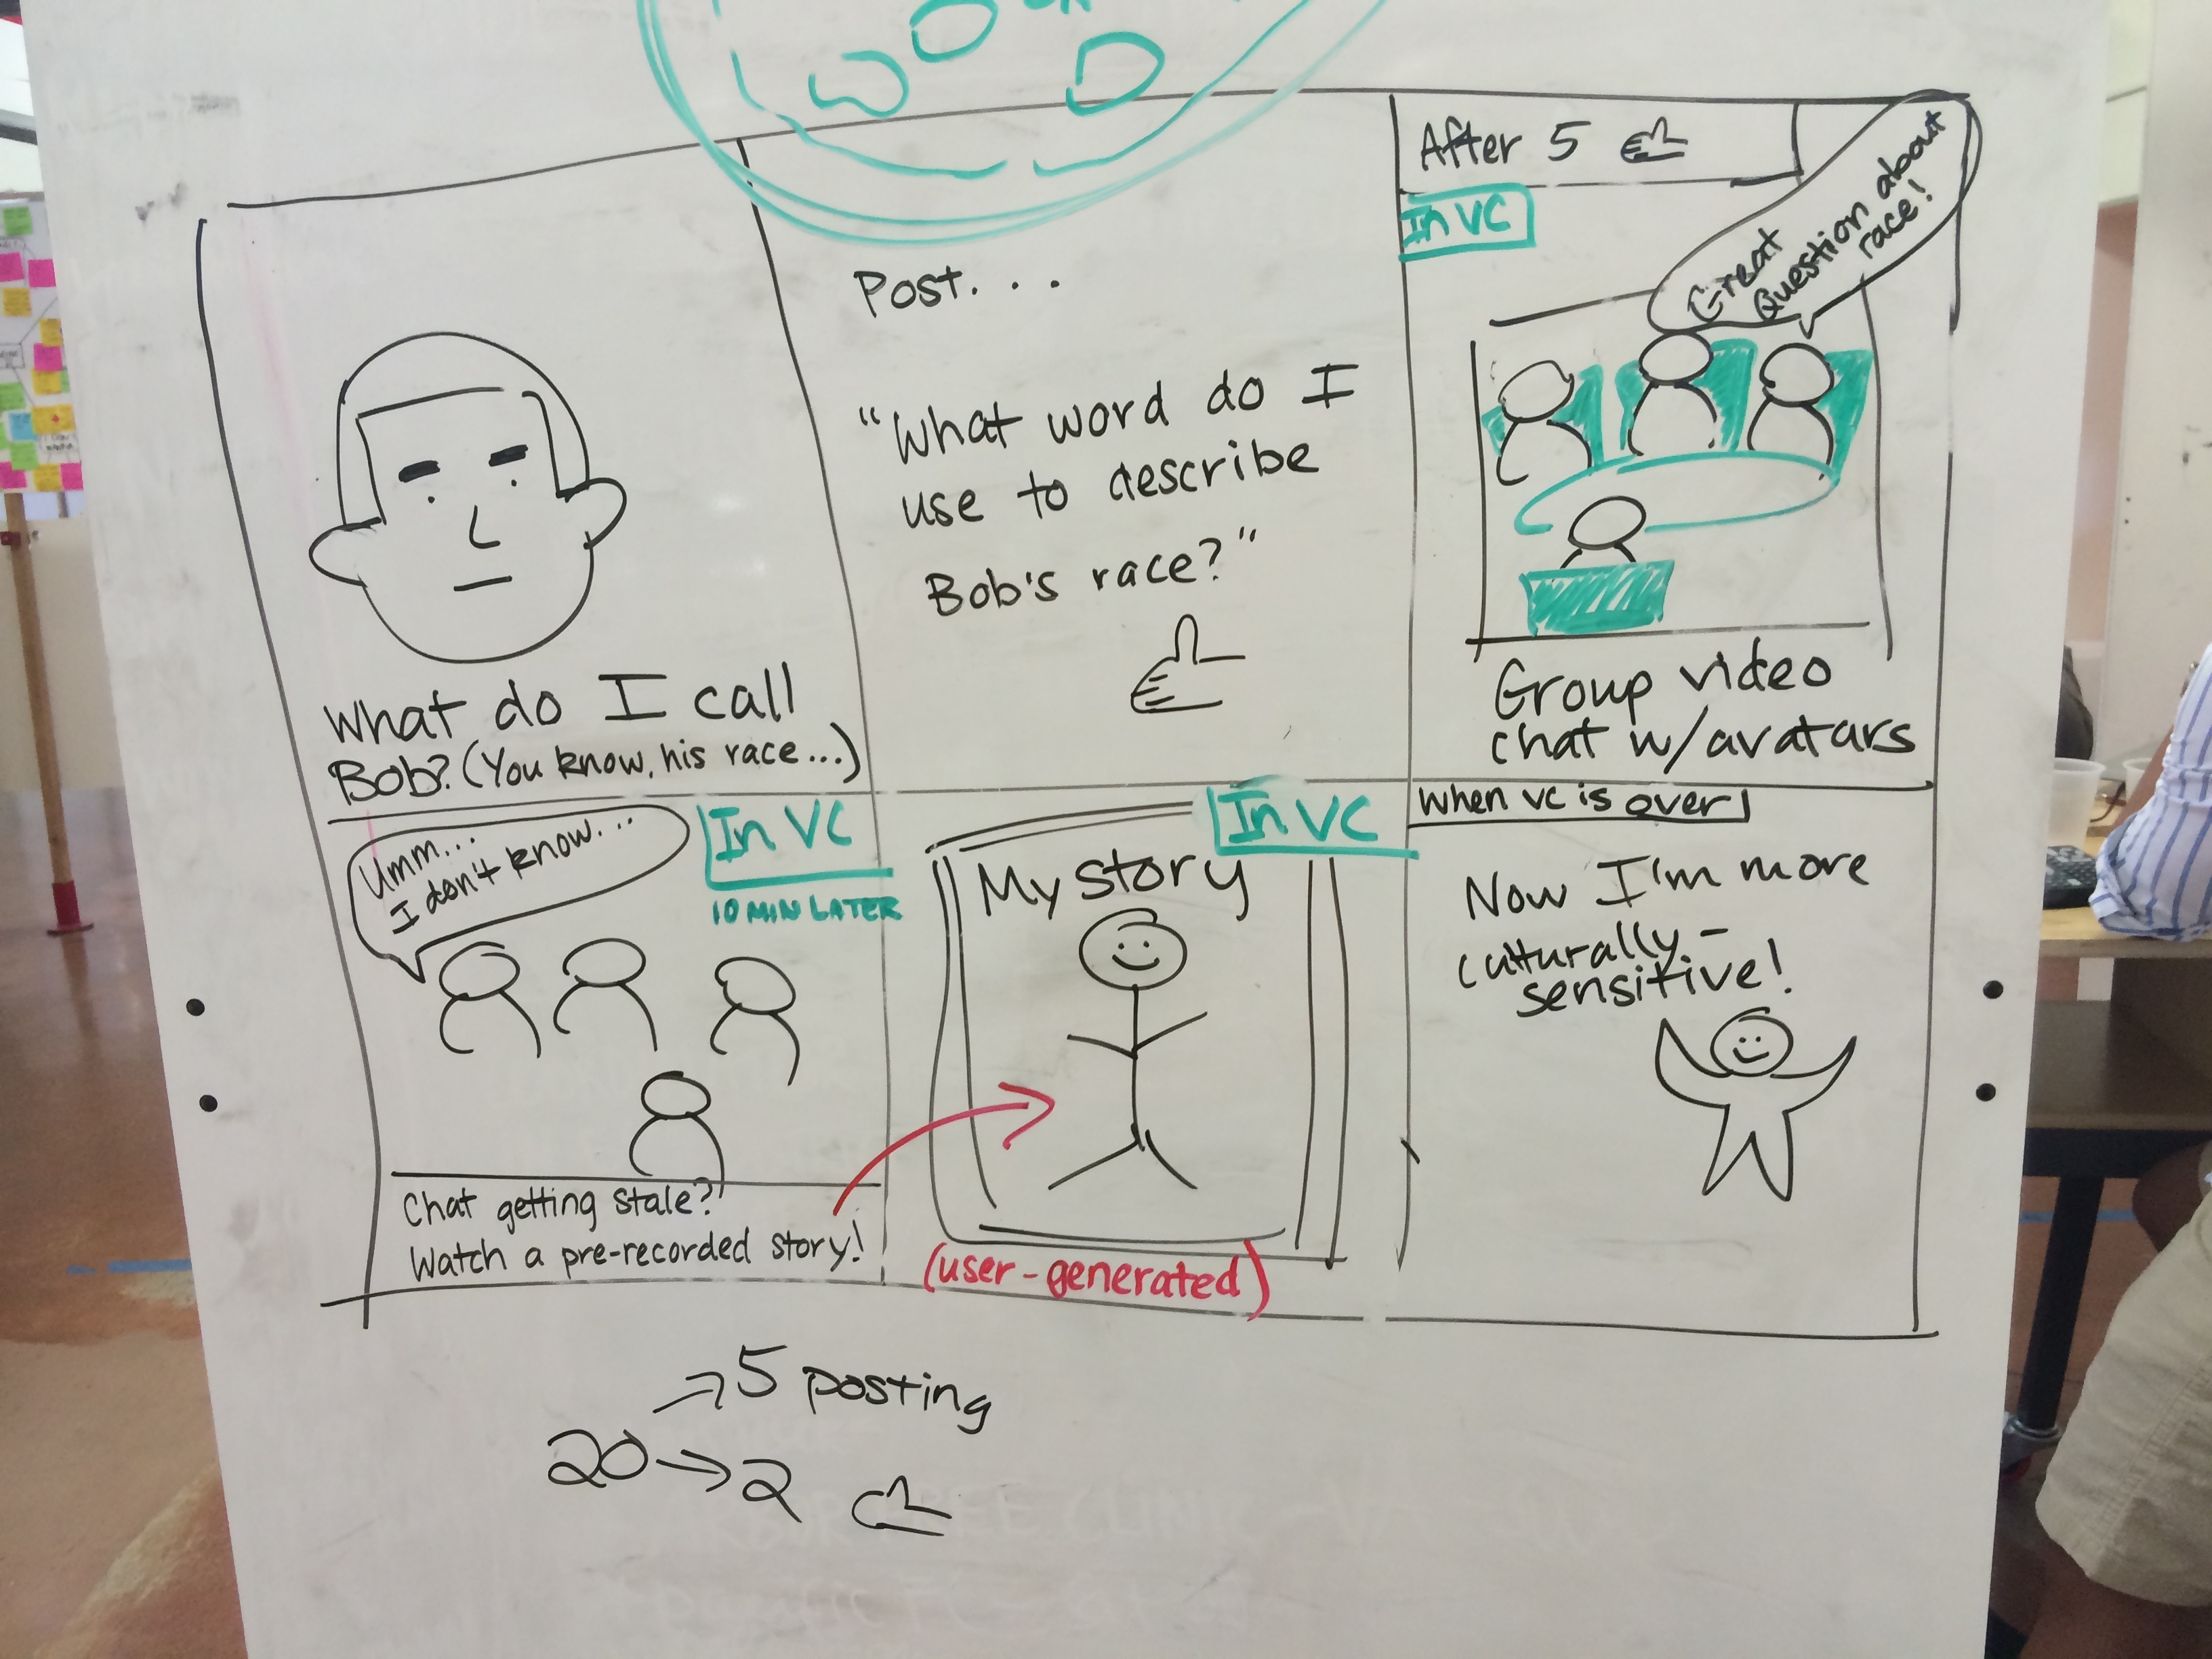 What do I call
Bob? (You know, his race...)
Post...
"What word do I
use to describe
Bob's race?"
After 5
In VC
Great
Question about
race!
Group video
chat w/avatars
Umm...
I don't know...
In VC
10 MIN LATER
Chat getting stale?
Watch a pre-recorded story!
In VC
My story
(user-generated)
When VC is over
Now I'm more
culturally-
sensitive!
5 posting
20 → 2